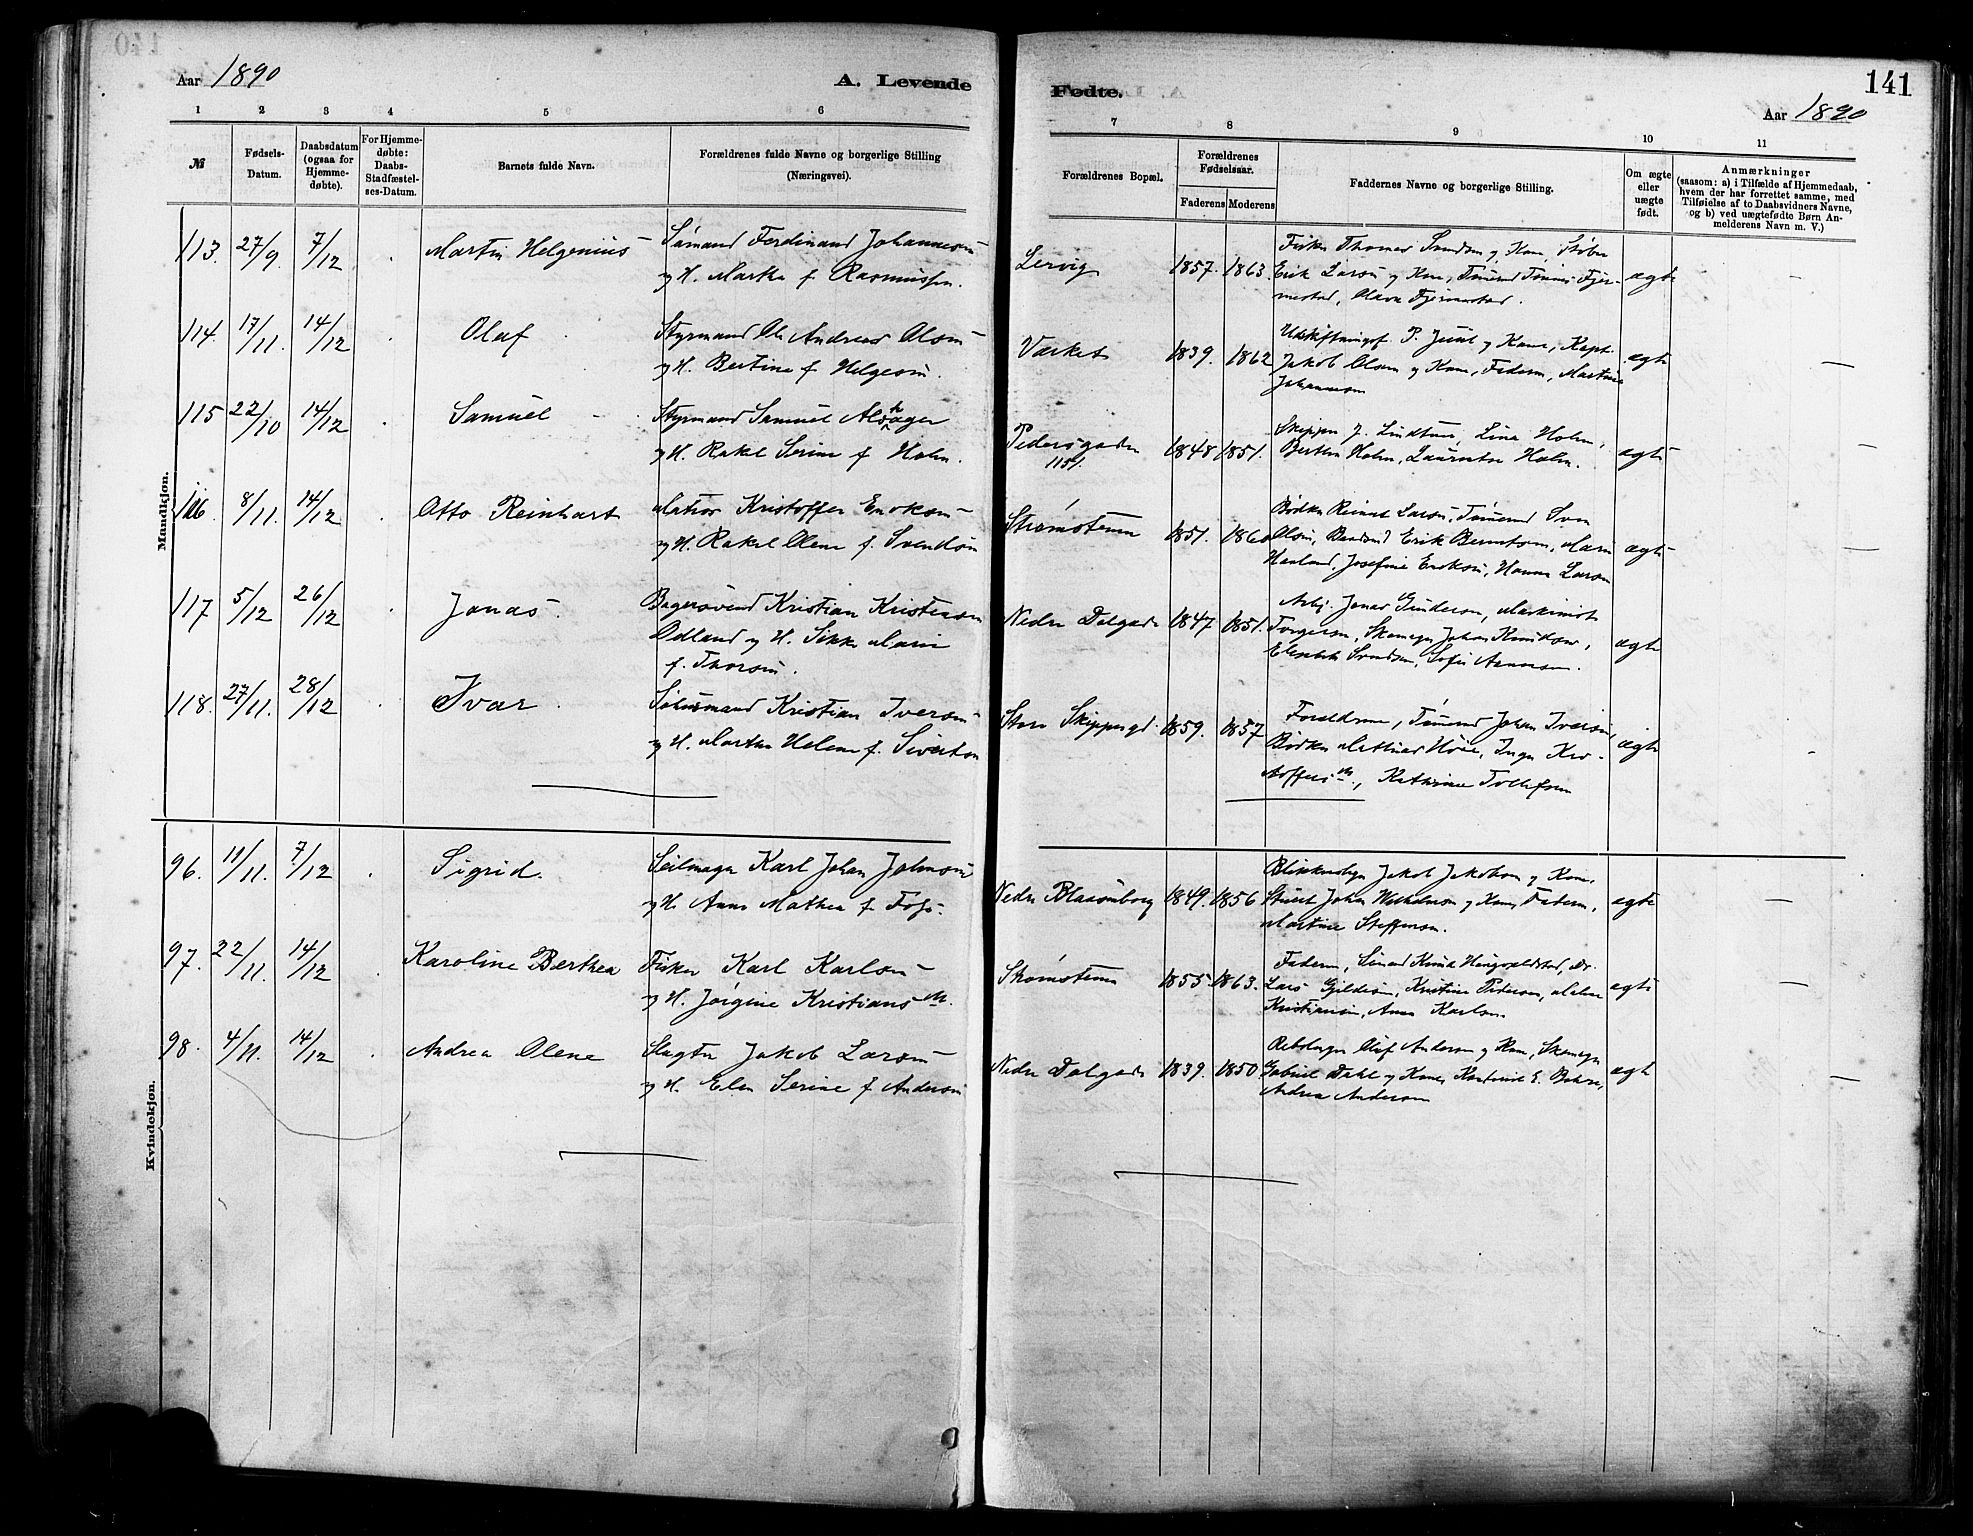 141
Aar 1890
A. Levende Fødte.
Aar 1890
1 2 3 4 5 6 7 8 9 10 11
№
Fødsels-Datum.
Daabsdatum (ogsaa for Hjemmedøbte).
For Hjemmedøbte: Daabs-Stadfæstelses-Datum.
Barnets fulde Navn.
Forældrenes fulde Navne og borgerlige Stilling (Næringsvei).
Forældrenes Bopæl.
Forældrenes Fødselsaar.
Faderens Moderens
Faddernes Navne og borgerlige Stilling.
Om ægte eller uægte født.
Anmærkninger
(saasom: a) i Tilfælde af Hjemmedaab, hvem der har forrettet samme, med Tilføielse af to Daabsvidners Navne, og b) ved uægtefødte Børn Anmelderens Navn m. V.)
Mandkjøn.
113. 27/9. 7/12 Martin Helgenius Sømand Ferdinand Johannesen
og H. Marthe f. Rasmussen.
Lervig 1857. 1863.
Fisker Thomas Svendsen og Kone,
Erik Larsen og Kone,
Olava Fjermestad.
ægte
114. 17/11. 14/12 Olaf Styrmand Ole Andreas Olsen
og H. Bertine f. Helgesen.
Værket 1839. 1862
P. Juul og Kone, Kapt.
Jakob Olsen og Kone, Faderen, Martine
Johannesen
ægte
115 22/10 14/12 Samuel Styrmand Samuel Alsaager
og H. Rakel Serine f. Holm.
Pedersgaden 115 1848 1851.
Skipper J. Lindtner, Lina Holm,
Berten Holm, Laurentse Holm.
ægte
116. 8/11. 14/12 Otto Reinhart Matros Kristoffer Eriksen
og H. Rakel Olene f. Svendsen
Strømstenen 1851. 1860
Bødker Reinert Larsen, Tømmermd Sven
Olsen, Erik Berntsen,
Haaland, Josefine Eriksen, Hanna Larsen
ægte
117 5/12 26/12 Jonas. Bagersvend Kristian Kristensen
Odland og H. Sikke Marie
f. Thorsen.
Nedre Dalgade 1847. 1851.
Arb. Jonas Gundersen, Maskinist
Torgersen, Skomager Johan Knudsen,
Elisabeth Svendsen, Sofie Aanensen.
ægte
118. 27/11. 28/12 Ivar Kristian Iversen
og H. Marthe Helene f. Sivertsen
Store Skippergd 1859. 1857
Forældrene, Tømmermd Johan Iversen,
Bødker Mathias Høie, Inga Kri-
stoffersen, Kathrine Tollefsen
ægte
Kvindekjøn.
96. 11/11. 7/12 Sigrid. Seilmager Karl Johan Johnsen
og H. Anne Mathea f. Foss.
Nedre Blaasenborg 1849. 1856
Jakob Jakobsen og Kone,
Stuert Johan Wilhelmsen og Kone, Faderen,
Martine Steffensen.
ægte
97. 22/11. 14/12 Karoline Berthea Fisker Karl Karlsen
og H. Jørgine Kristians M.
Strømstenen 1855. 1863.
Faderen, Sømand Knud
Lars Gjildesen, Kristine Pedersen, Malene
Kristiansen, Anna Karlsen.
ægte
98. 4/11. 14/12 Andrea Olene Slagter Jakob Larsen
og H. Elen Serine f. Andersen
Nedre Dalgade 1839. 1850
Rebslager Oluf Andersen og Kone, Skomager
Gabriel Dahl og Kone,
Andrea Andersen
ægte